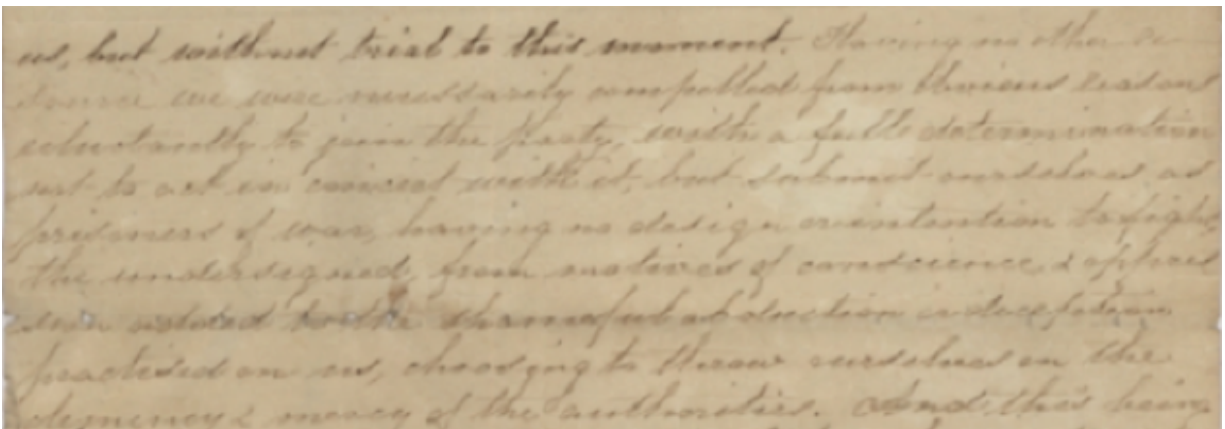 us, but without trial to this moment. Having no other re
source we were necessarily compelled from obvious reasons
reluctantly to join the party, with a full determination
not to act in concert with it, but submit ourselves as
prisoners of war, having no design or intention to fight
the undersigned, from motives of conscience, &
added to the shameful abduction
practised on us, choosing to throw ourselves on the
clemency & mercy of the authorities. And this being